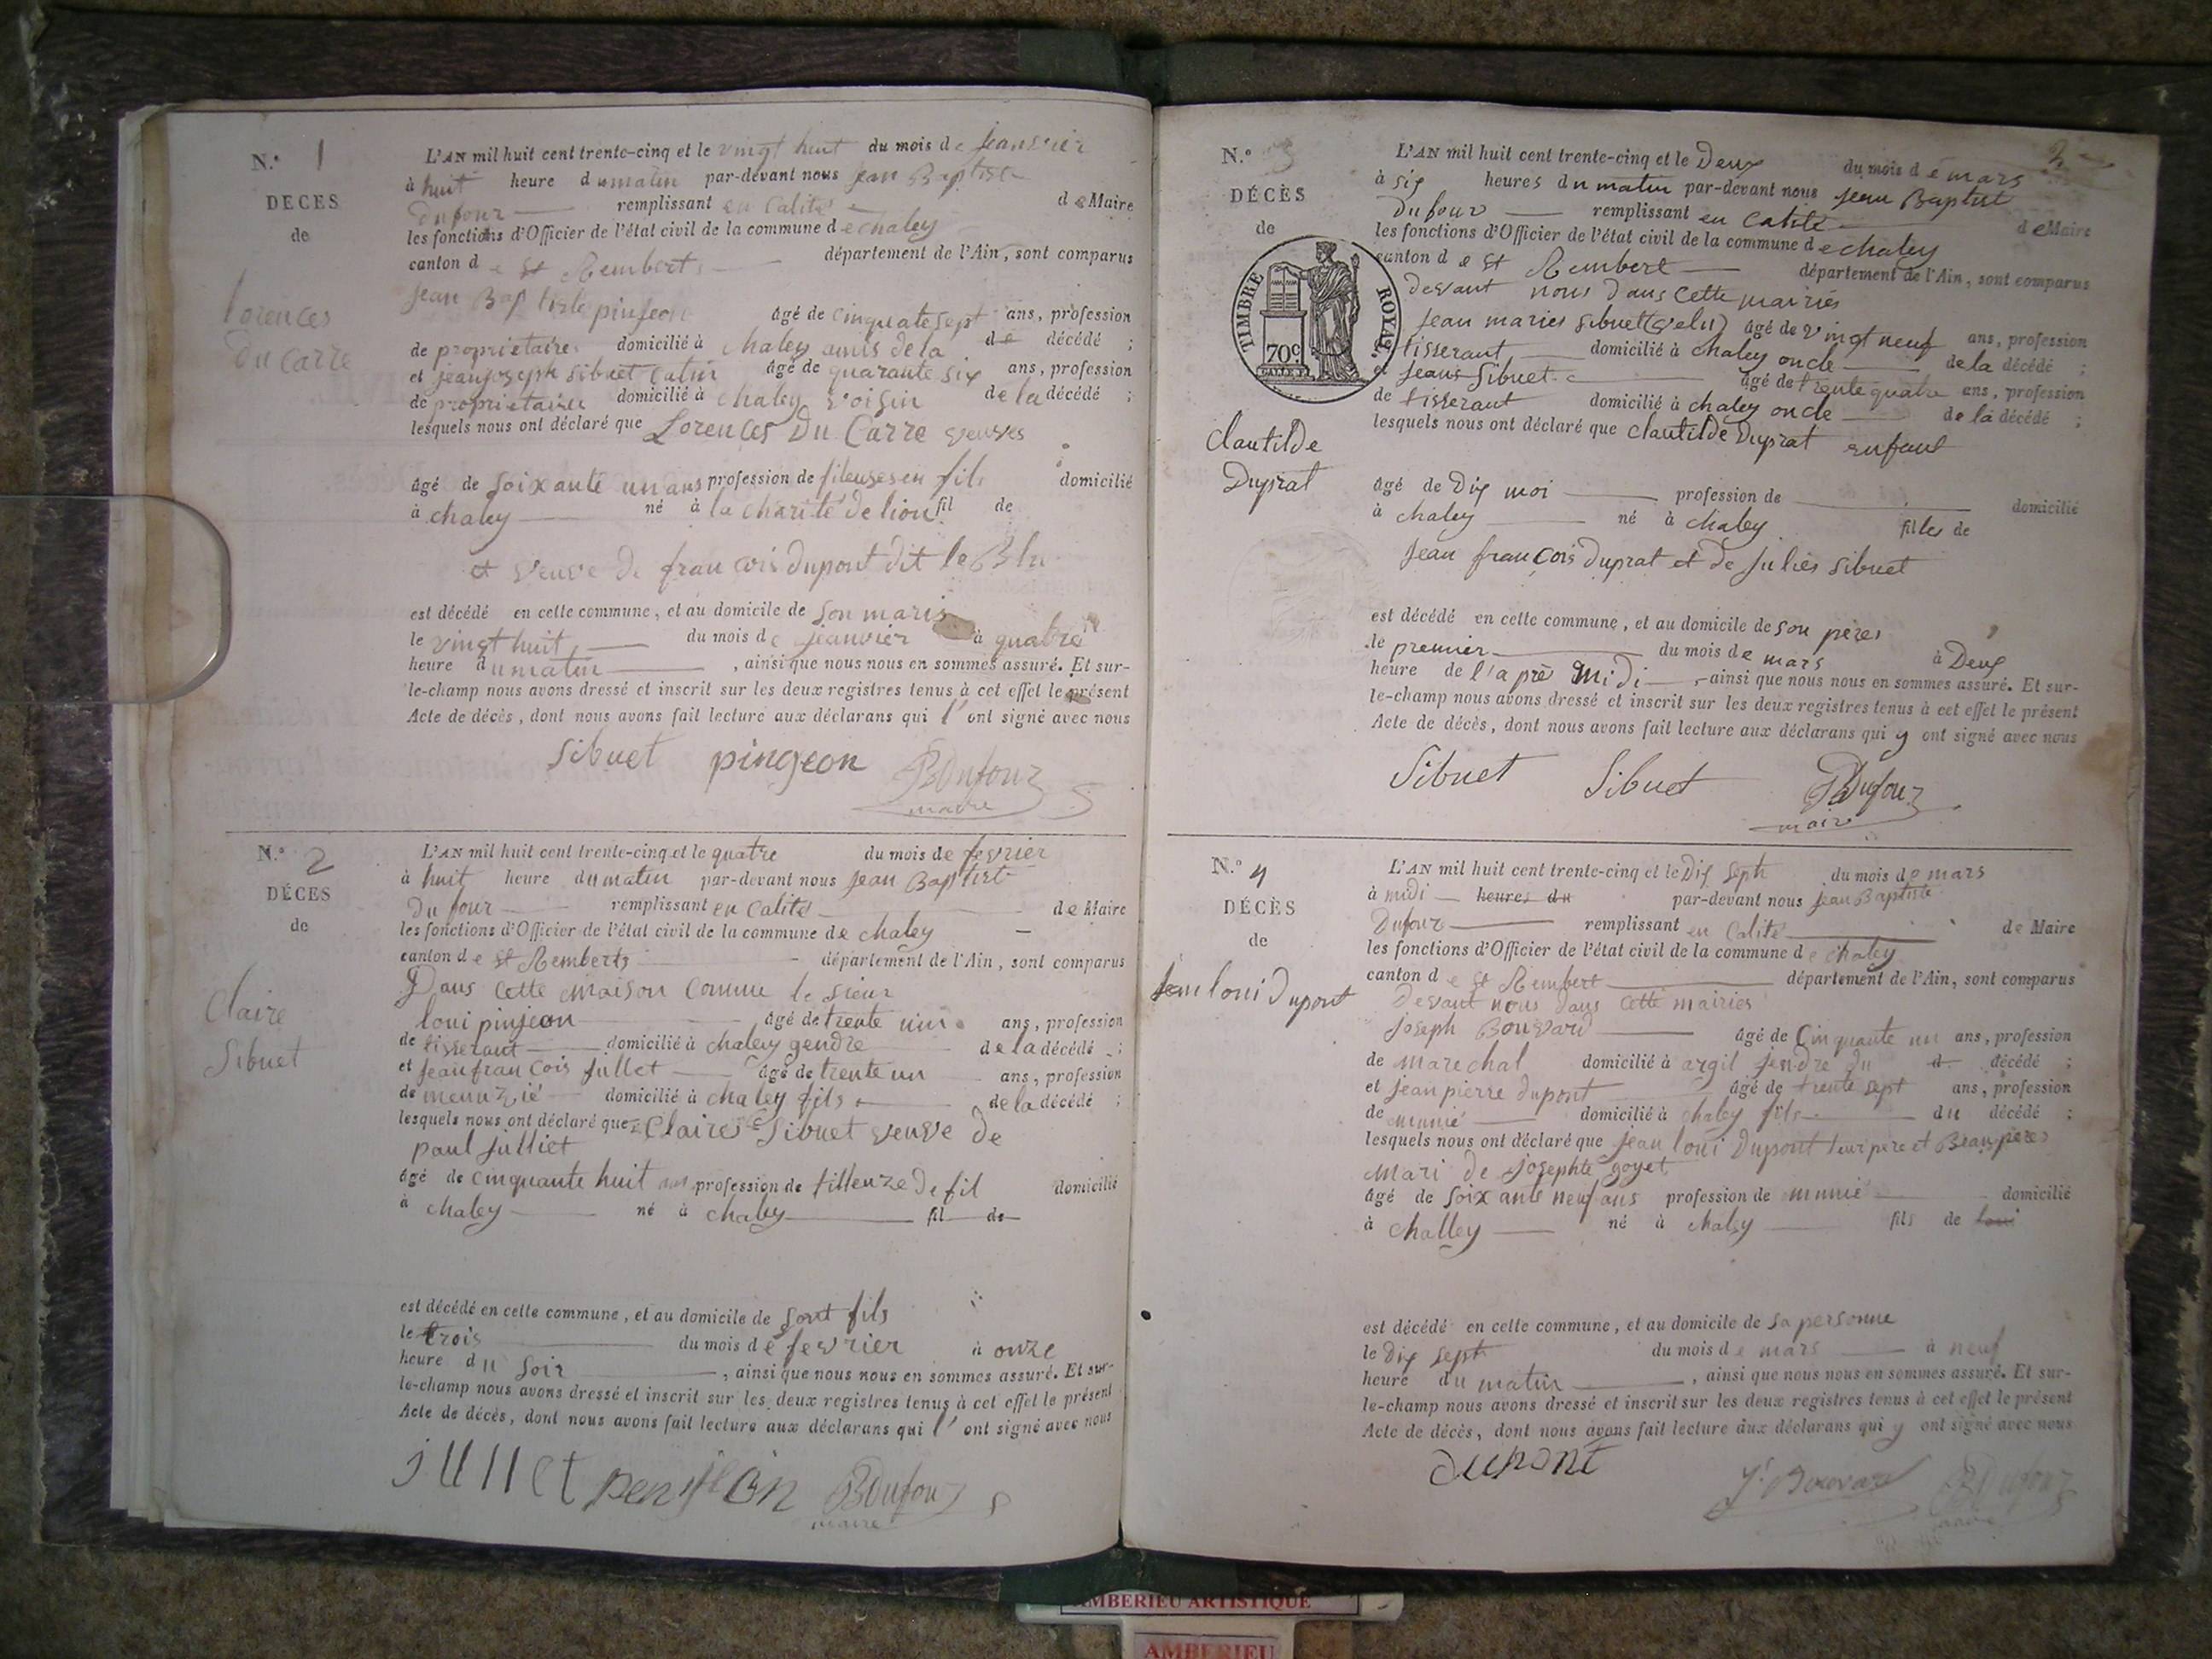 N.° 1
DÉCES
de
Lorences
Du Carre
L'AN mil huit cent trente-cinq et le vingt huit du mois de Jeanvier
à huit heure du matin par-devant nous jean Baptiste
Dufour remplissant en Calité de Maire
les fonctions d'Officier de l'état civil de la commune de chaley
canton de St Remberts département de l'Ain, sont comparus
jean Baptiste pinjeon âgé de cinquate sept ans, profession
de proprietaire domicilié à chaley amis de la de décédé ;
et jean joseph Sibuet Catin âgé de quarante six ans, profession
de proprietaire domicilié à chaley voisin de la décédé ;
lesquels nous ont déclaré que Lorences Du Carre veuves
âgé de soixante un ans profession de fileuses en fil domicilié
à chaley né à la charité de lion fil de
et veuve de francois dupont dit le Blu
est décédé en cette commune, et au domicile de son maris
le vingt huit du mois de jeanvier à quatre
heure du matin, ainsi que nous nous en sommes assuré. Et sur-
le-champ nous avons dressé et inscrit sur les deux registres tenus à cet effet le présent
Acte de décès, dont nous avons fait lecture aux déclarans qui l' ont signé avec nous
Sibuet pingeon JB Dufour
maire
N.° 2
DÉCES
de
Claire
Sibuet
L'AN mil huit cent trente-cinq et le quatre du mois de fevrier
à huit heure du matin par-devant nous jean Baptist
Dufour remplissant en Calité de Maire
les fonctions d'Officier de l'état civil de la commune de chaley
canton de St Remberts département de l'Ain, sont comparus
Dans cette maison comune le sieur
loui pinjeon âgé de trente ans, profession
de tisserant domicilié à chaley gendre de la décédé ;
et jean francois jullet âgé de trente un ans, profession
de meunzié domicilié à chaley fils de la décédé ;
lesquels nous ont déclaré que Claire Sibuet veuve de
paul julliet
âgé de cinquante huit ans profession de filleuze de fil domicilié
à chaley né à chaley fil de
est décédé en cette commune, et au domicile de sont fils
le trois du mois de fevrier à onze
heure du soir, ainsi que nous nous en sommes assuré. Et sur-
le-champ nous avons dressé et inscrit sur les deux registres tenus à cet effet le présent
Acte de décès, dont nous avons fait lecture aux déclarans qui l' ont signé avec nous
jullet penjeon JB Dufour
maire
2
N.° 3
DÉCÈS
de
TIMBRE ROYAL
70c
Clautilde
Duprat
L'AN mil huit cent trente-cinq et le Deux du mois de mars
à six heures du matin par-devant nous jean Baptist
Dufour remplissant en Calité de Maire
les fonctions d'Officier de l'état civil de la commune de chaley
canton de St Rembert département de l'Ain, sont comparus
devant nous dans cette mairies
jean maries sibuet (velu) âgé de vingt neuf ans, profession
tisserant domicilié à chaley oncle de la décédé ;
jean Sibuet âgé de trente quatre ans, profession
de tisserant domicilié à chaley oncle de la décédé ;
lesquels nous ont déclaré que Clautilde Duprat enfant
âgé de dix moi profession de domicilié
à chaley né à chaley filles de
jean francois Duprat et de julies Sibuet
est décédé en cette commune, et au domicile de son pères
le premier du mois de mars à Deux
heure de l'aprè midi, ainsi que nous nous en sommes assuré. Et sur-
le-champ nous avons dressé et inscrit sur les deux registres tenus à cet effet le présent
Acte de décès, dont nous avons fait lecture aux déclarans qui y ont signé avec nous
Sibuet Sibuet JB Dufour
maire
N.° 4
DÉCÈS
de
jean loui Dupont
L'AN mil huit cent trente-cinq et le Dix seph du mois de mars
à midi heures du par-devant nous jean Baptiste
Dufour remplissant en Calité de Maire
les fonctions d'Officier de l'état civil de la commune de chaley
canton de St Rembert département de l'Ain, sont comparus
devant nous dans cette mairies
joseph Bouvard âgé de Cinquante un ans, profession
de marechal domicilié à argil jendre du d décédé ;
et jean pierre dupont âgé de trente sept ans, profession
de munié domicilié à chaley fils du décédé ;
lesquels nous ont déclaré que jean loui Dupont leur pere et Beau pères
mari de josephte goyet
âgé de soixante neuf ans profession de munié domicilié
à challey né à chaley fils de loui
est décédé en cette commune, et au domicile de sa personne
le dix seph du mois de mars à neuf
heure du matin, ainsi que nous nous en sommes assuré. Et sur-
le-champ nous avons dressé et inscrit sur les deux registres tenus à cet effet le présent
Acte de décès, dont nous avons fait lecture aux déclarans qui y ont signé avec nous
dupont J. Bouvard JB Dufour
maire
AMBERIEU ARTISTIQUE
AMBERIEU